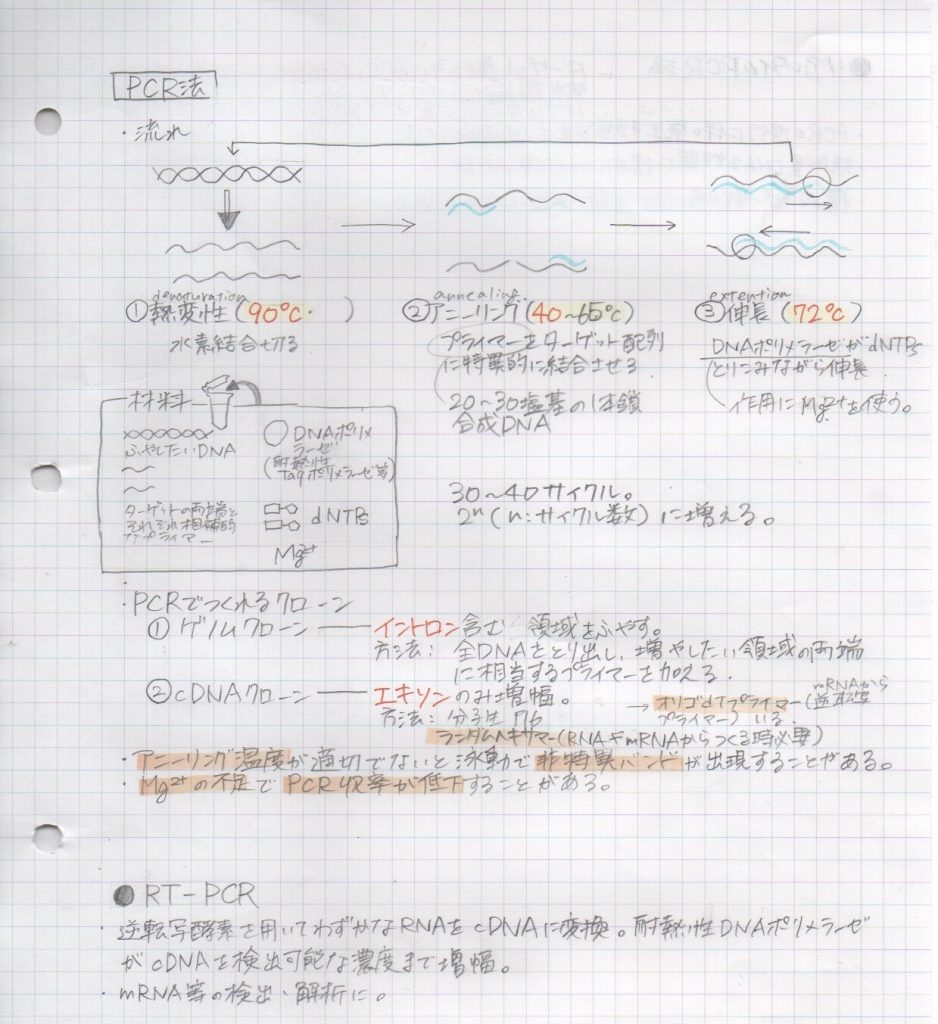 PCR法
・流れ
denaturation
①熱変性(90℃・　)
水素結合切る
annealing
②アニーリング(40~65℃)
プライマーをターゲット配列
に特異的に結合させる
20~30塩基の1本鎖
合成DNA
extention
③伸長(72℃)
DNAポリメラーゼがdNTPs
とりこみながら伸長
作用にMg²⁺を使う。
材料
ふやしたいDNA
ターゲットの両端と
それぞれ相補的
なプライマー
DNAポリメ
ラーゼ
(耐熱性
Taqポリメラーゼ等)
dNTPs
Mg²⁺
30~40サイクル。
2ⁿ(n:サイクル数)に増える。
・PCRでつくれるクローン
①ゲノムクローン――イントロン含む 領域をふやす。
方法: 全DNAをとり出し、増やしたい領域の両端
に相当するプライマーを加える.
②cDNAクローン――エキソンのみ増幅。
方法: 分子生 P6
→オリゴdTプライマー(mRNAから逆転写
プライマー)いる.
ランダムヘキサマー(RNA≠mRNAからつくる時必要)
・アニーリング温度が適切でないと泳動で非特異バンドが出現することがある。
・Mg²⁺の不足でPCR収率が低下することがある。
●RT-PCR
・逆転写酵素を用いてわずかなRNAをcDNAに変換。耐熱性DNAポリメラーゼ
がcDNAを検出可能な濃度まで増幅。
・mRNA等の検出・解析に。